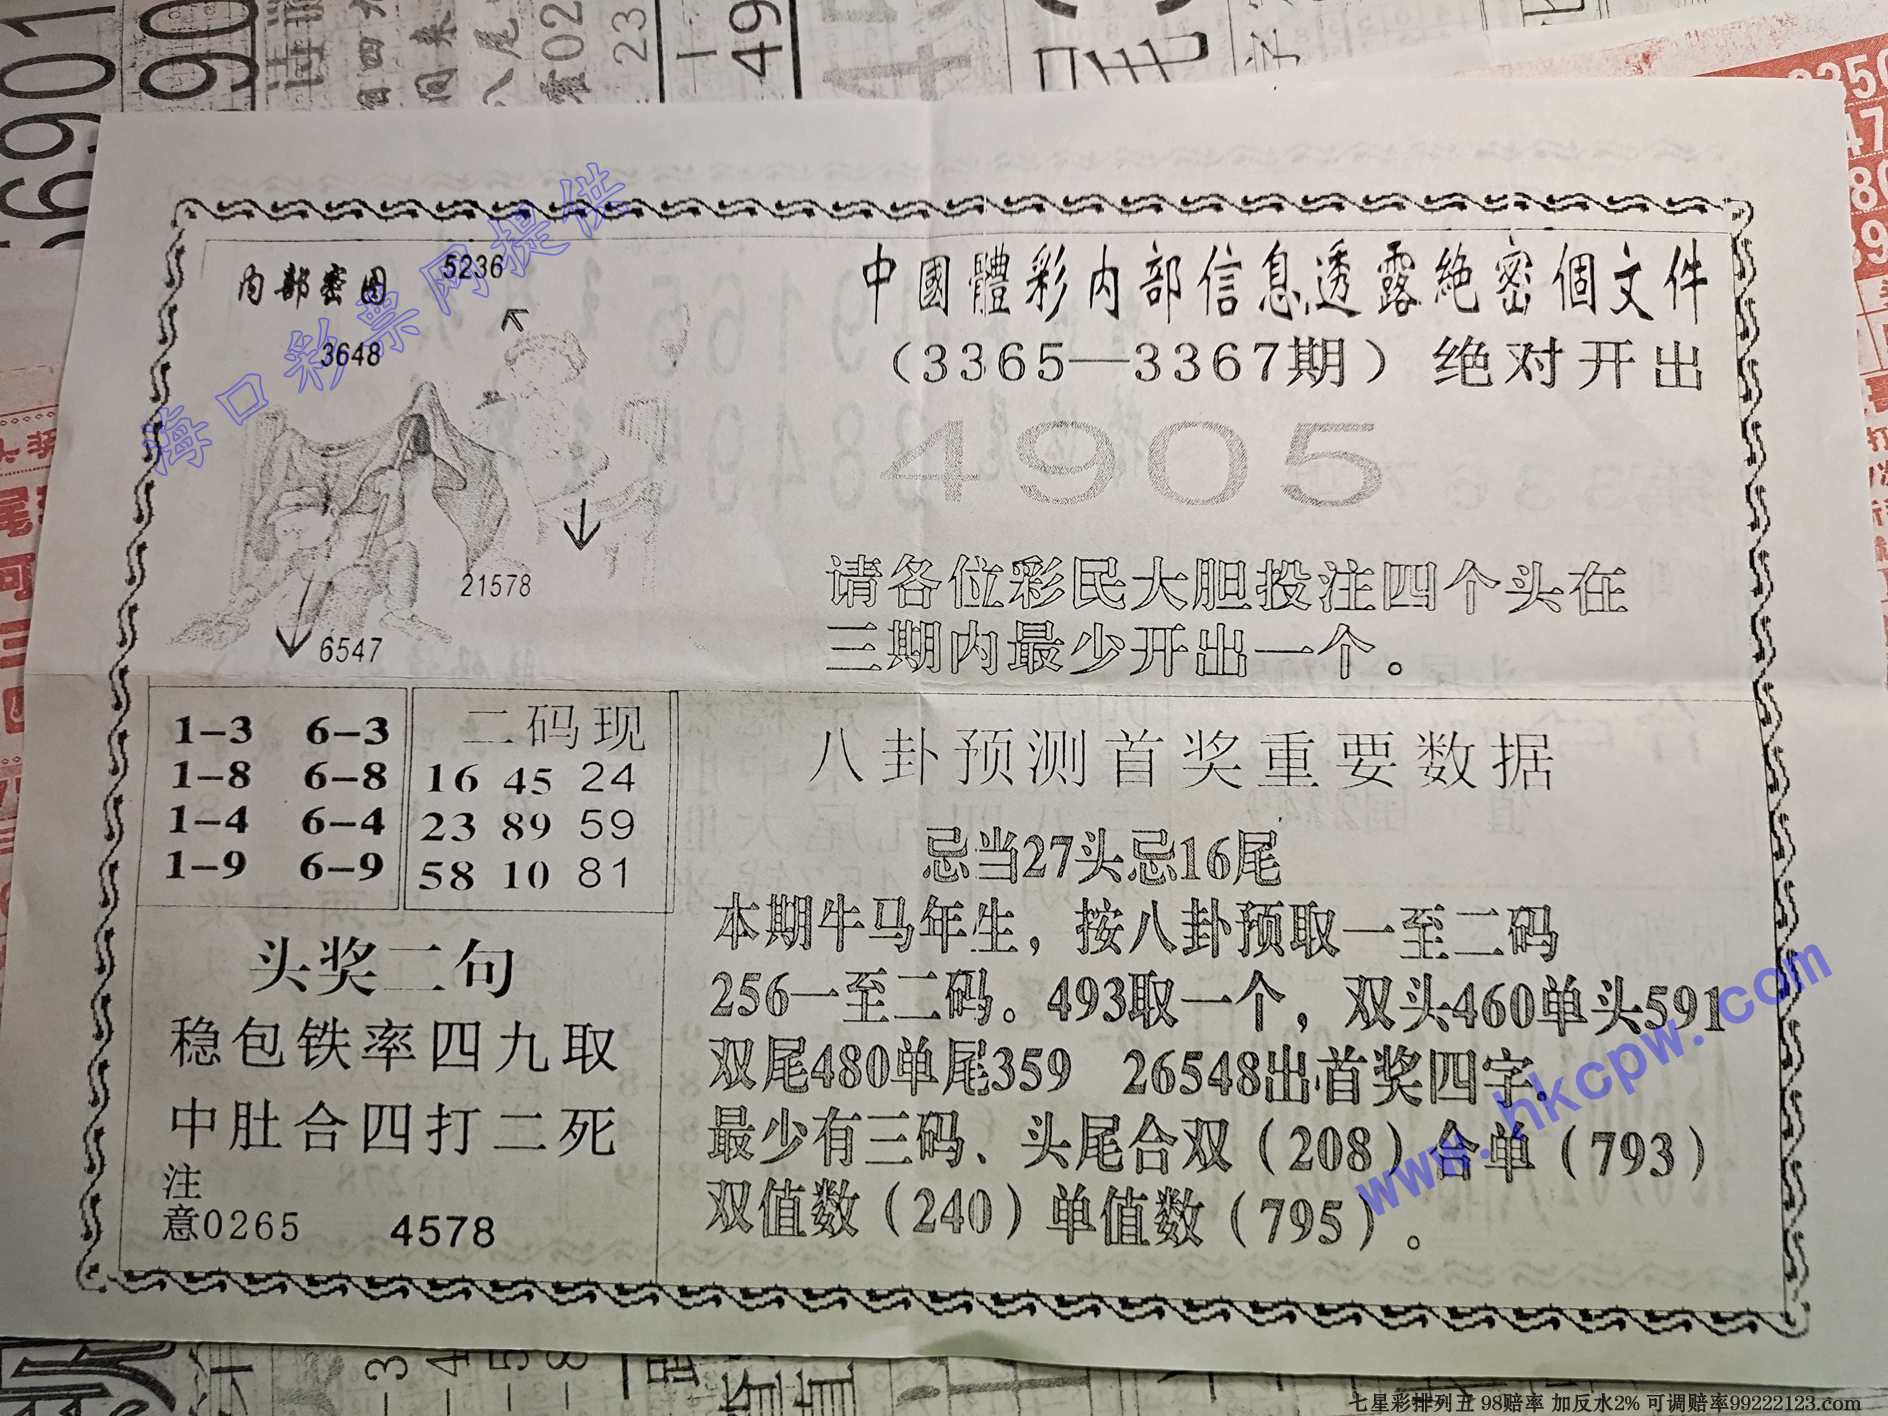 内部密图
5236
3648
21578
6547
中國體彩内部信息透露絶密個文件
（3365—3367期）绝对开出
4905
请各位彩民大胆投注四个头在
三期内最少开出一个。
1-3 6-3
1-8 6-8
1-4 6-4
1-9 6-9
二码现
16 45 24
23 89 59
58 10 81
头奖二句
稳包铁率四九取
中肚合四打二死
注
意0265 4578
八卦预测首奖重要数据
忌当27头忌16尾
本期牛马年生，按八卦预取一至二码
256一至二码。493取一个，双头460单头591
双尾480单尾359 26548出首奖四字。
最少有三码、头尾合双（208）合单（793）
双值数（240）单值数（795）。
海口彩票网提供
www.hkcpw.com
七星彩排列五 98赔率 加反水2% 可调赔率99222123.com